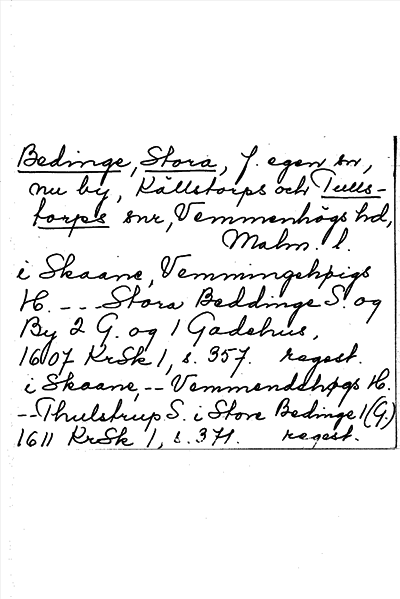 Bedinge, Stora, f. egen sn,
nu by, Källstorps och Tulls-
torps snr, Vemmenhögs hd,
Malm. l.
i Skaane, Vemmingehøigs
H. -- Stora Beddinge S. og
By 2 G. og 1 Gadehus,
1607 KrSk 1, s. 357. regest.
i Skaane, -- Vemmendehøgs H.
-- Thulstrup S. i Store Bedinge 1 (G.)
1611 KrSk 1, s. 371. regest.